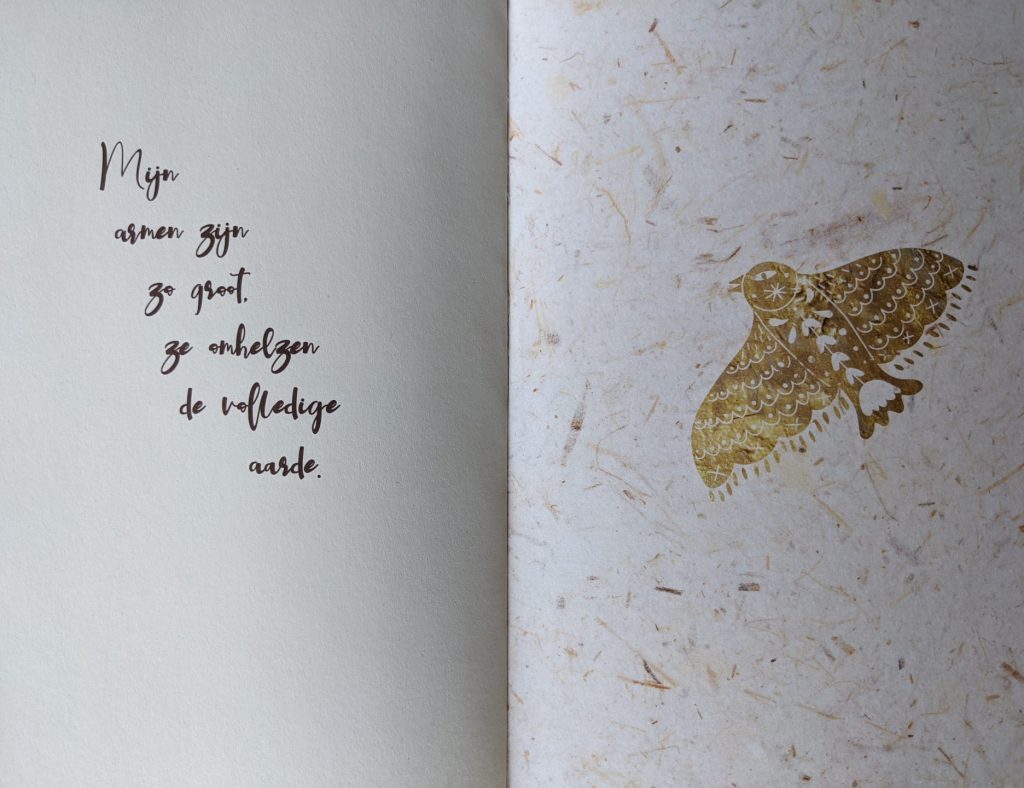 Mijn
armen zijn
zo groot,
ze omhelzen
de volledige
aarde.